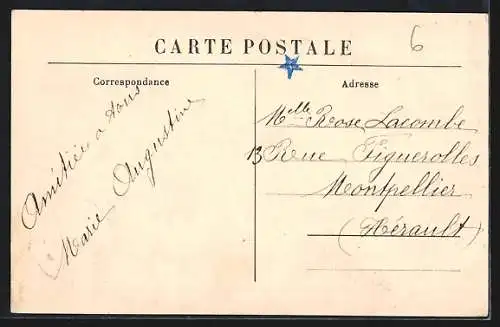 6
CARTE POSTALE
Correspondance
Adresse
Amitiés a tous
Marie Augustine
Melle Rose Lacombe
13 Rue Figuerolles
Montpellier
(Hérault)